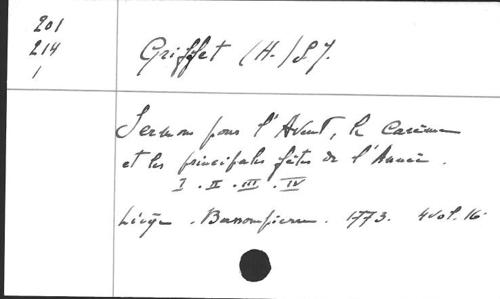 201
214
1
Griffet (H.) S J.
Sermons pour l'Avent, le Carême
et les principales fêtes de l'Année.
I . II . III . IV
Liége . Bassompierre . 1773. 4 vol. 16°